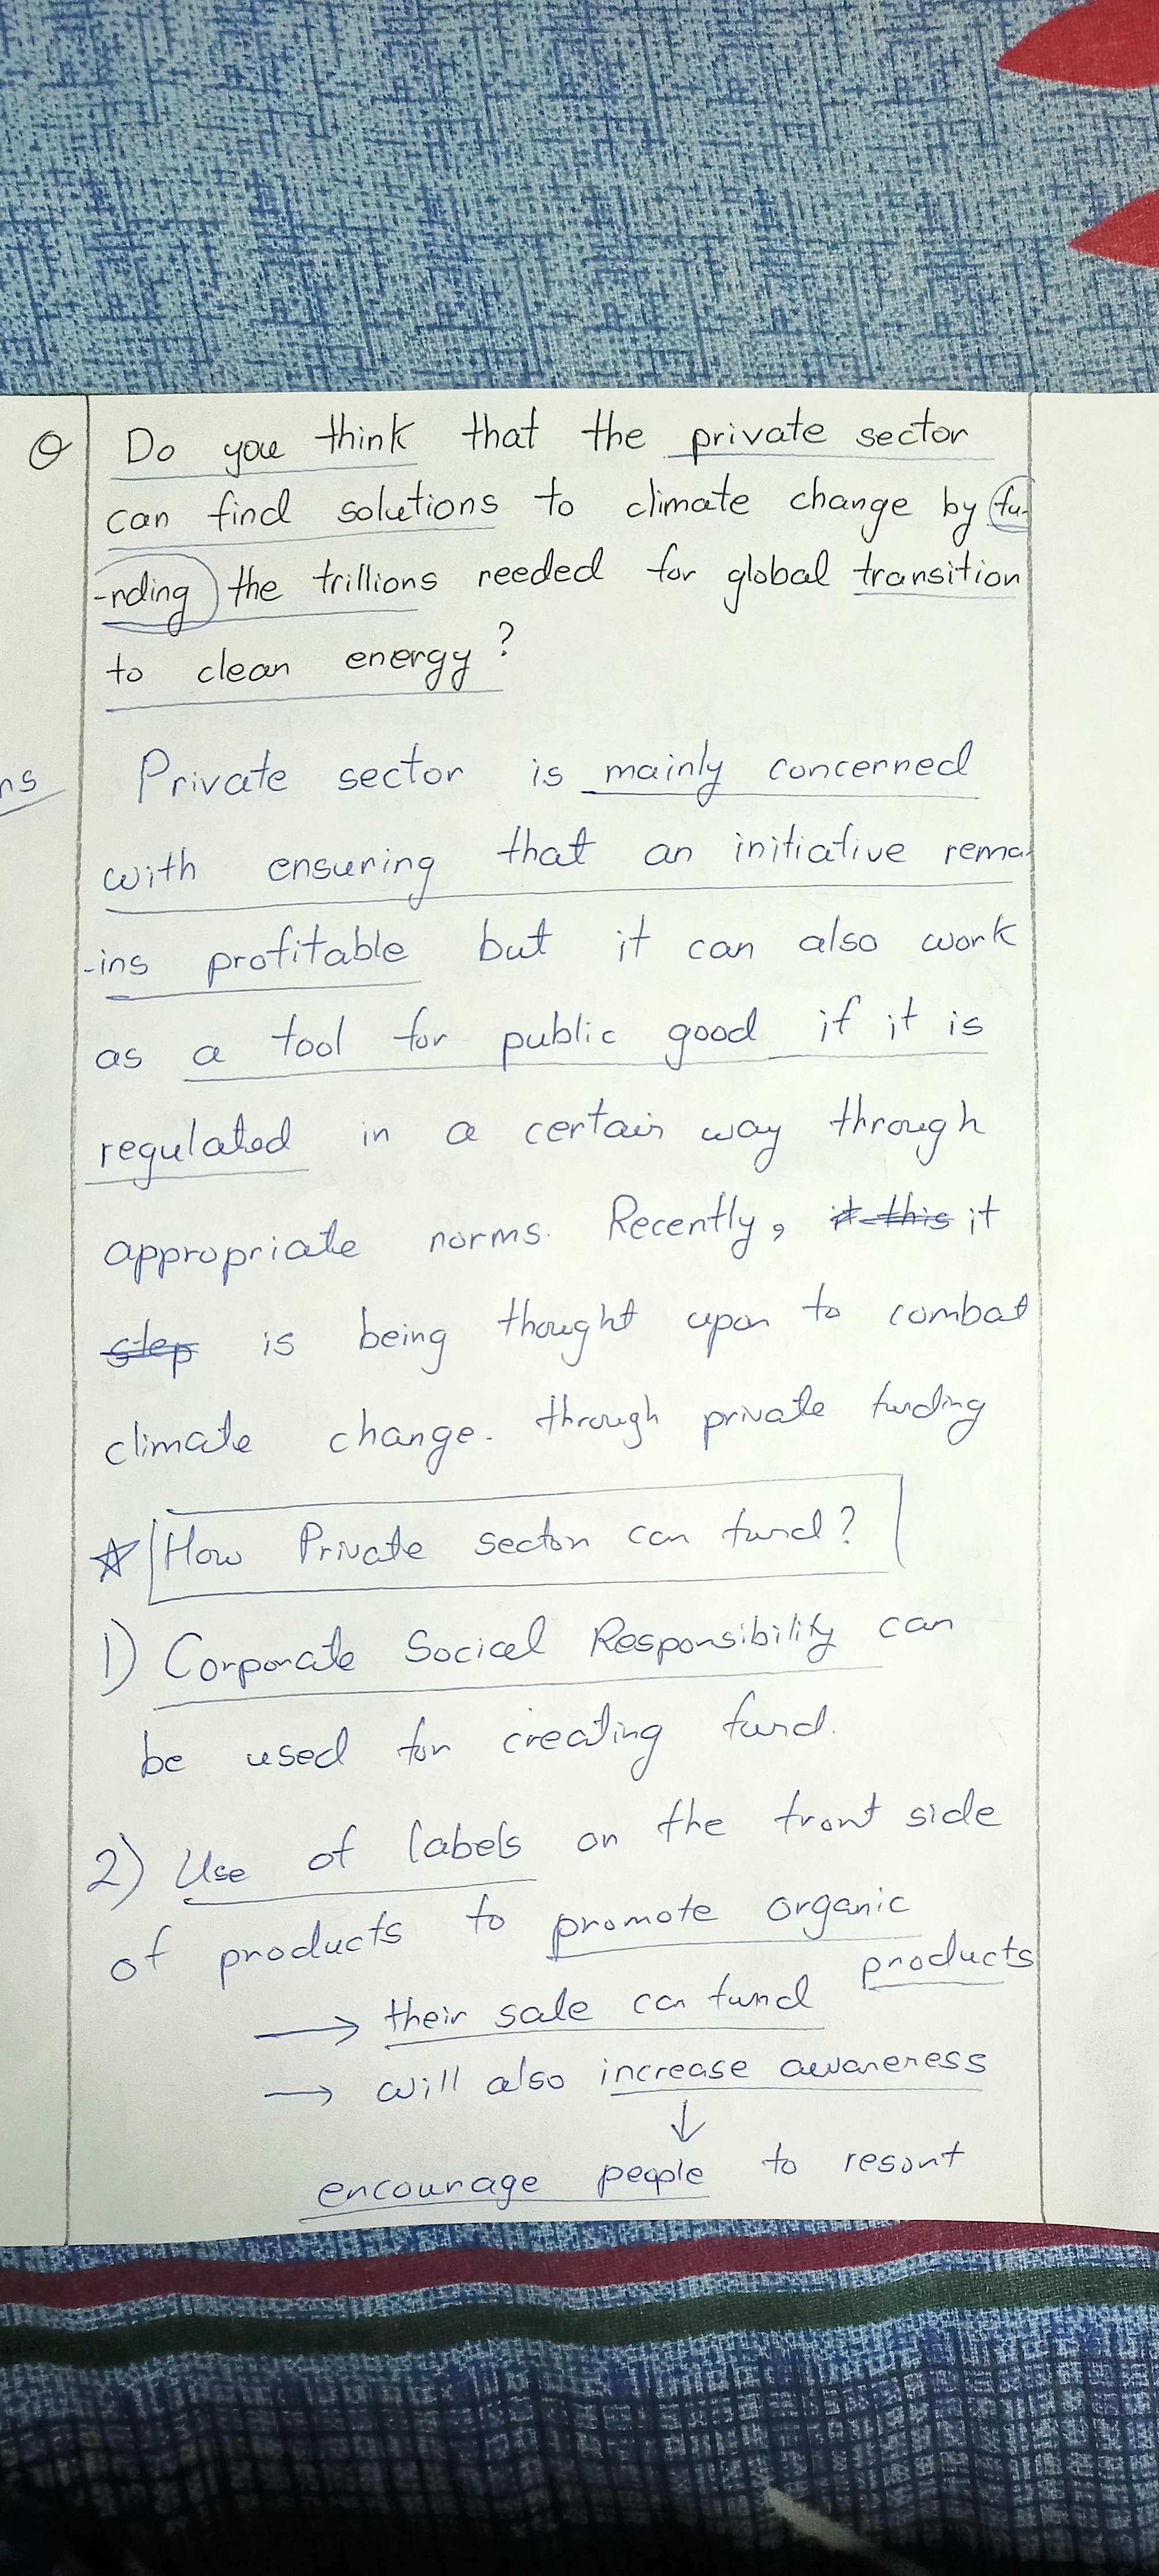 Q Do you think that the private sector
can find solutions to climate change by fu-
-nding the trillions needed for global transition
to clean energy?
ns Private sector is mainly concerned
with ensuring that an initiative rema-
-ins profitable but it can also work
as a tool for public good if it is
regulated in a certain way through
appropriate norms. Recently, it this it
step is being thought upon to combat
climate change. through private funding
☆ How Private sector can fund?
1) Corporate Social Responsibility can
be used for creating fund.
2) Use of labels on the front side
of products to promote organic
products
→ their sale can fund
→ will also increase awareness
↓
encourage people to resort